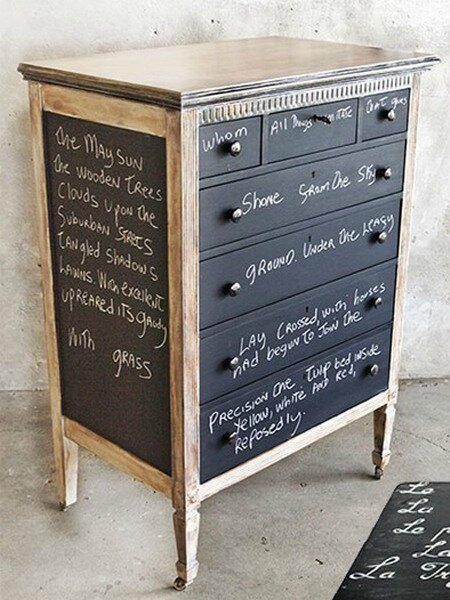 The May Sun
the wooden Trees
Clouds upon the
Suburban Streets
Tangled Shadows
Lawns. With excellent
upreared its gaudy
with
grass
Whom
All Things imitate
that guy
Shone from The Sky
GROUND. Under the Leafy
LAY Crossed, with houses
Had begun to Join The
PRECISION The Tulip bed inside
Yellow, white AND Red,
Reposedly.
Le
La
Le
La
La